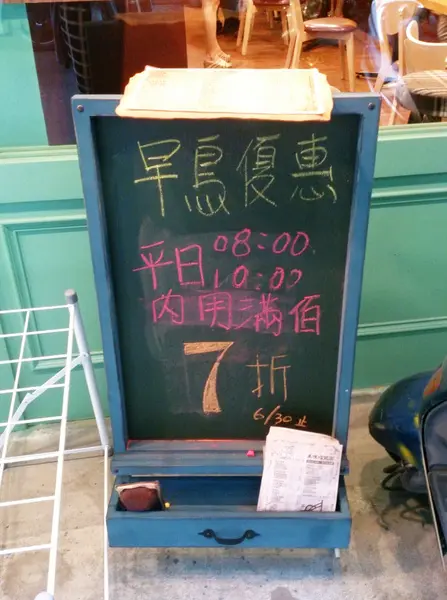 早鳥優惠
平日08:00
10:00
內用滿佰
7折
6/30止